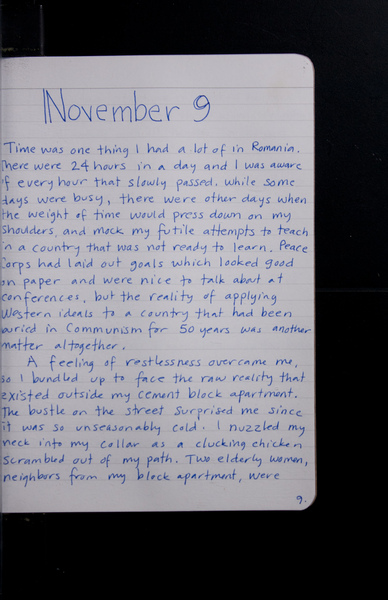 November 9
Time was one thing I had a lot of in Romania.
There were 24 hours in a day and I was aware
of every hour that slowly passed. While some
days were busy, there were other days when
the weight of time would press down on my
shoulders, and mock my futile attempts to teach
in a country that was not ready to learn. Peace
Corps had laid out goals which looked good
on paper and were nice to talk about at
conferences, but the reality of applying
Western ideals to a country that had been
buried in Communism for 50 years was another
matter altogether.
A feeling of restlessness overcame me,
so I bundled up to face the raw reality that
existed outside my cement block apartment.
The bustle on the street surprised me since
it was so unseasonably cold. I nuzzled my
neck into my collar as a clucking chicken
scrambled out of my path. Two elderly women,
neighbors from my block apartment, were
9.